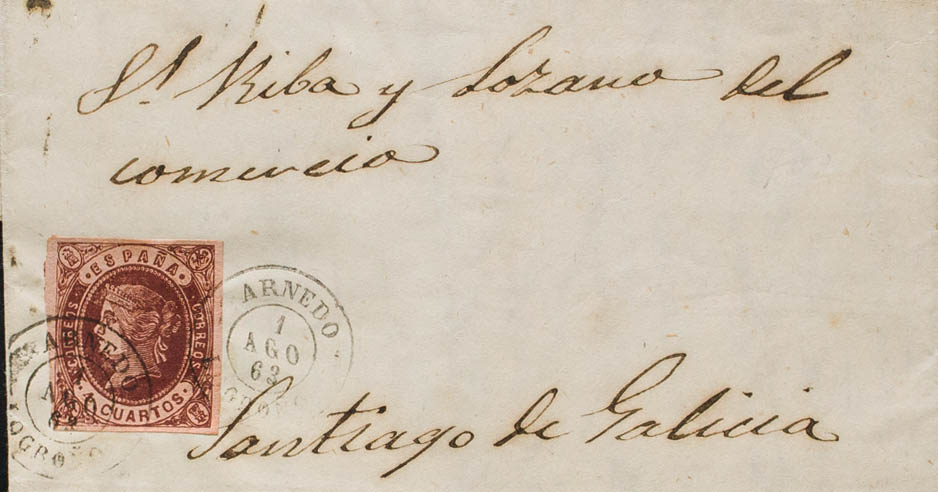 Sr Riba y Lozano del
comercio
ESPAÑA
CORREOS
CORREOS
CUARTOS
ARNEDO
1
AGO
63
LOGROÑO
ARNEDO
1
AGO
63
LOGROÑO
Santiago de Galicia